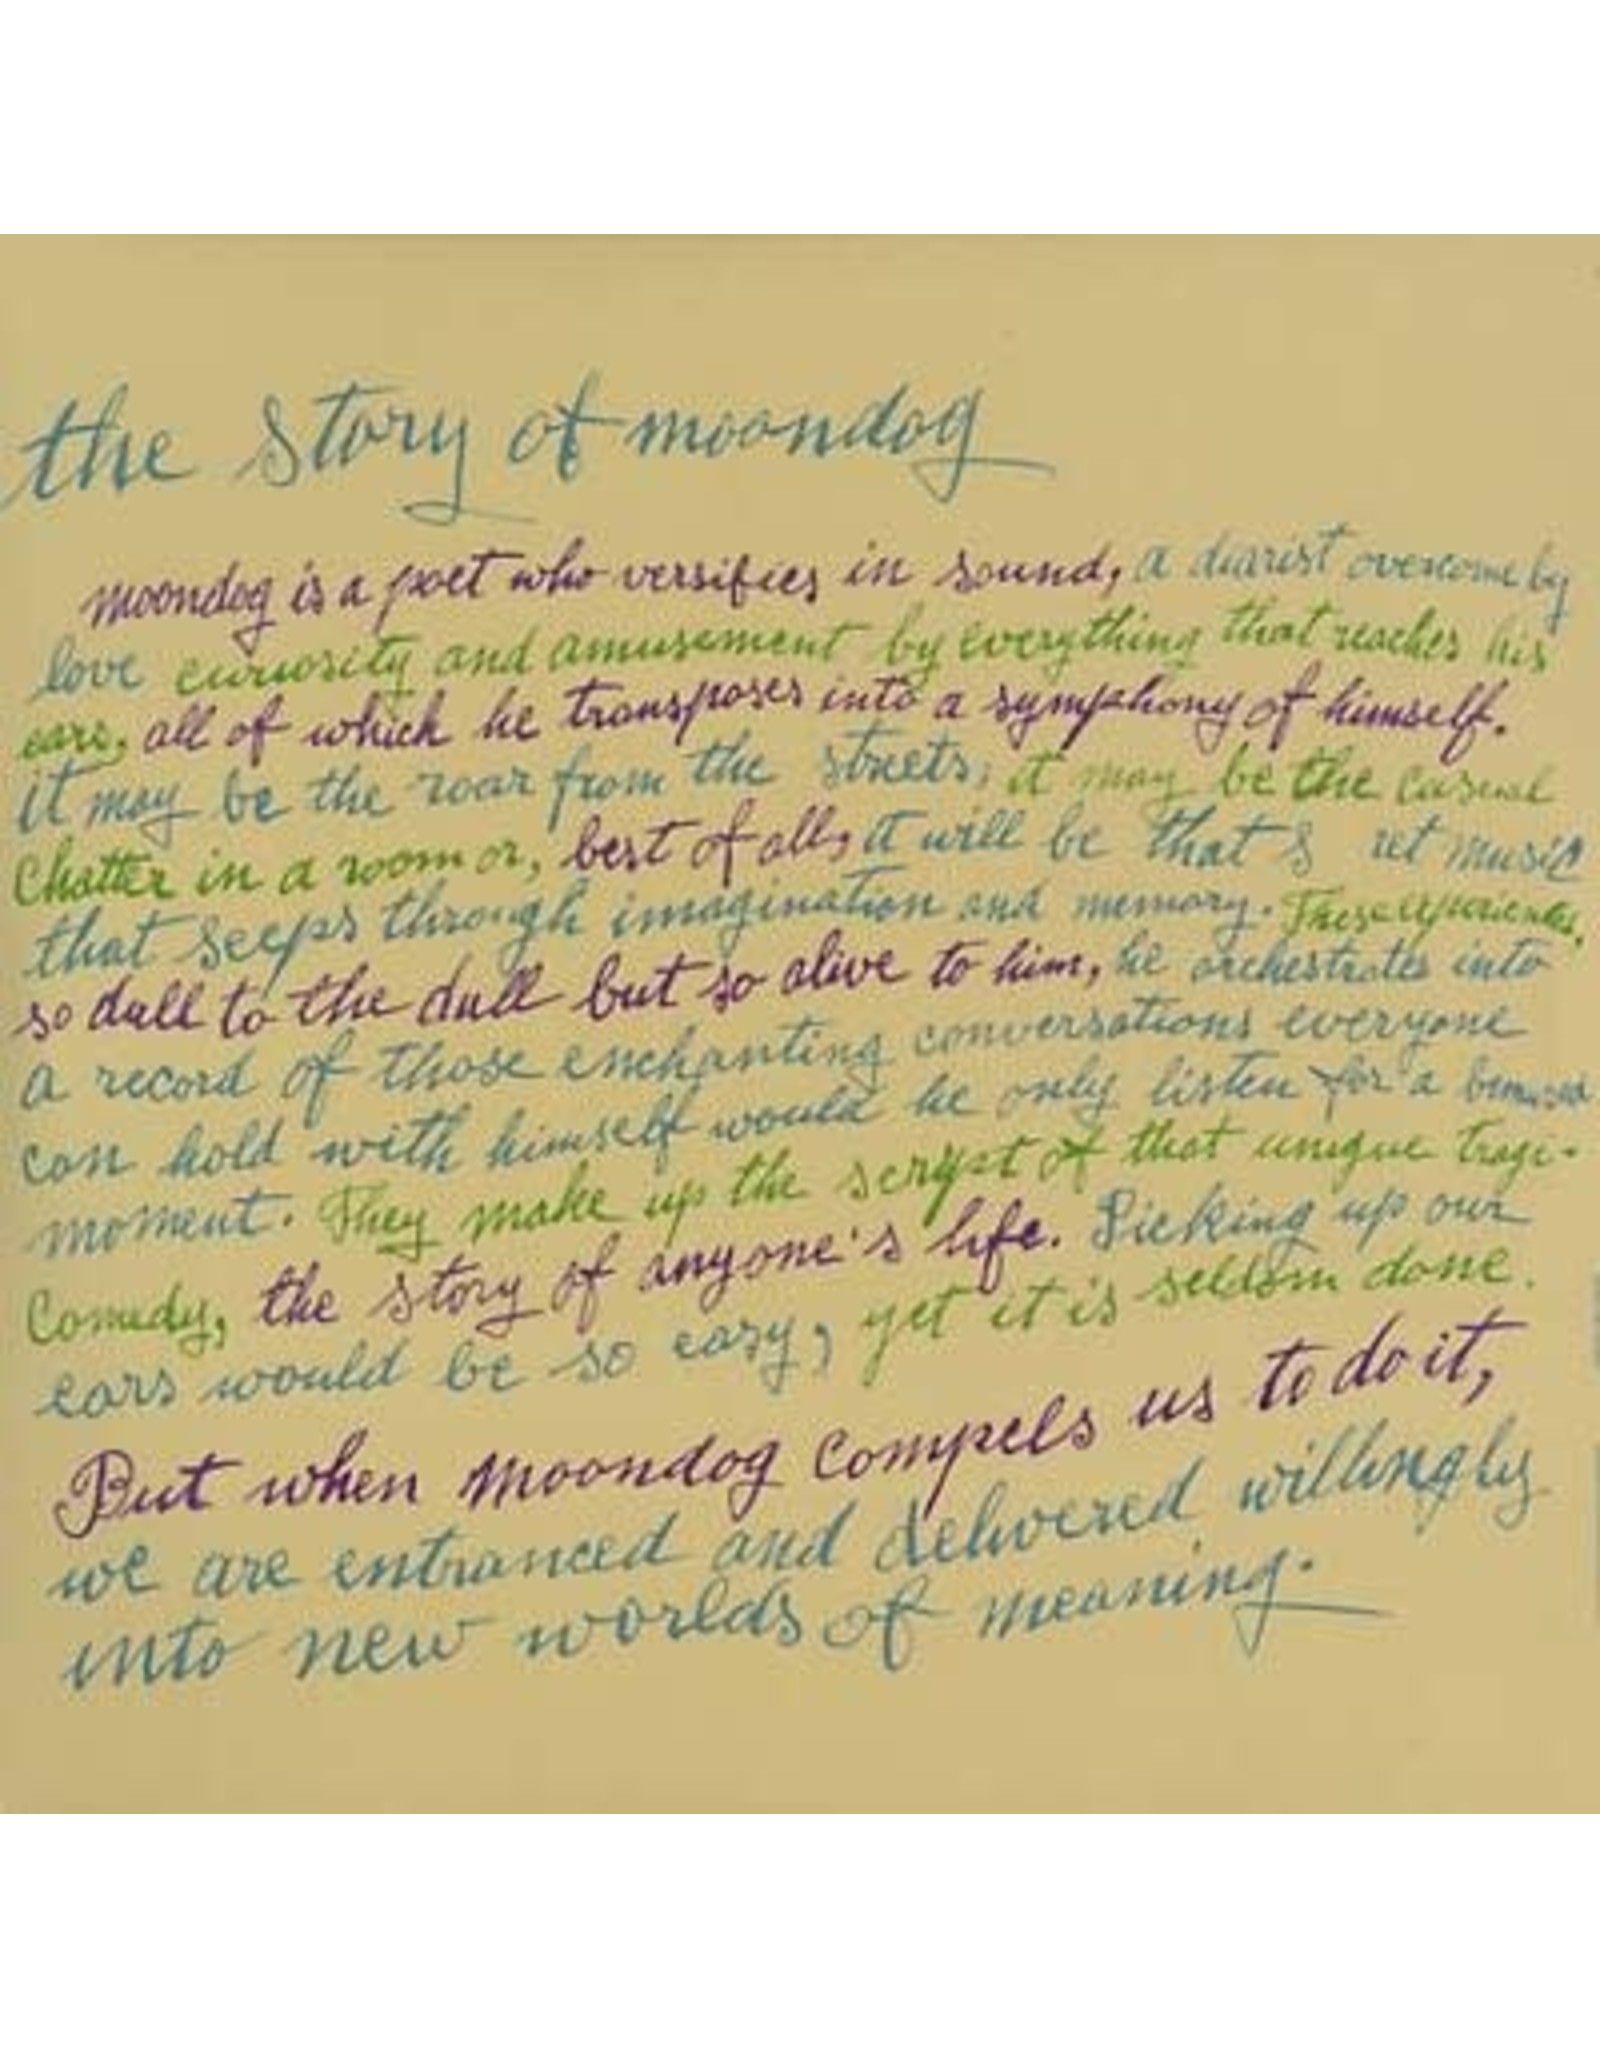 the story of moondog
moondog is a poet who versifies in sound, a diarist overcome by
love curiosity and amusement by everything that reaches his
ears, all of which he transposes into a symphony of himself.
it may be the roar from the streets, it may be the casual
Chatter in a room or, best of all, it will be that music
that seeps through imagination and memory. These experiences,
so dull to the dull but so alive to him, he orchestrates into
a record of those enchanting conversations everyone
can hold with himself would he only listen for a bemused
moment. They make up the script of that unique tragi-
Comedy, the story of anyone's life. Picking up our
ears would be so easy, yet it is seldom done.
But when moondog compels us to do it,
we are entranced and delivered willingly
into new worlds of meaning.